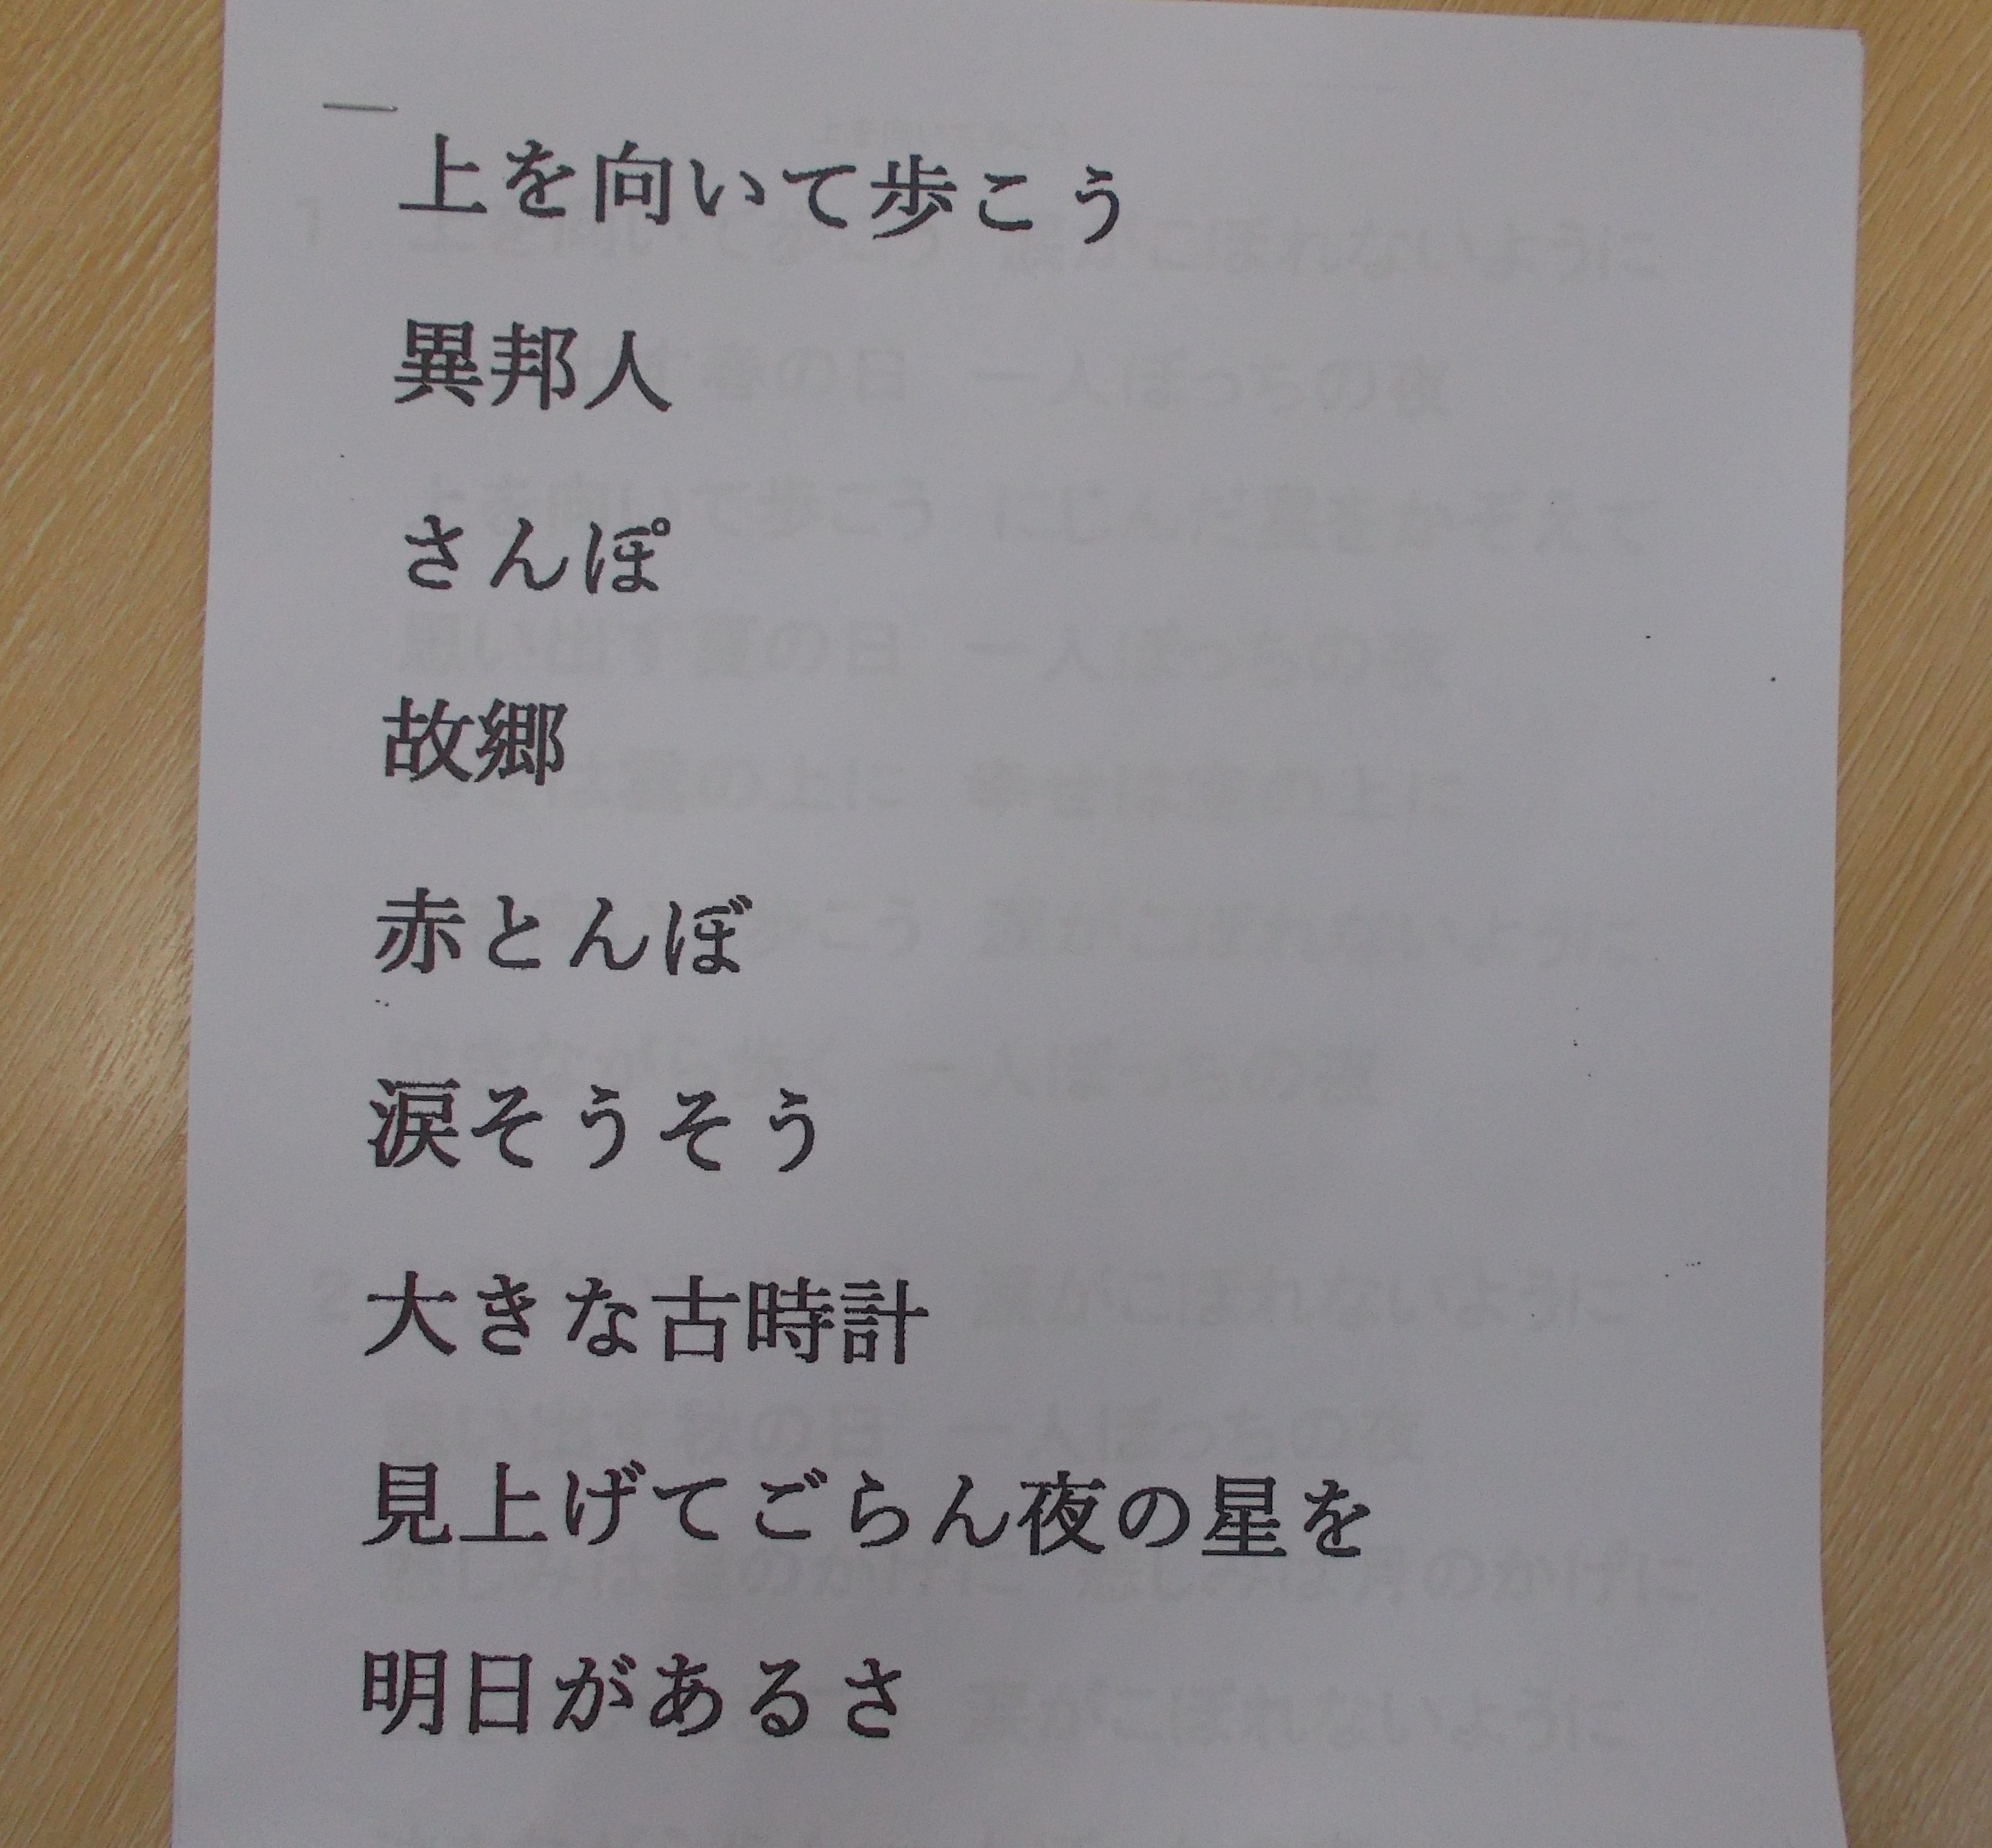 上を向いて歩こう
異邦人
さんぽ
故郷
赤とんぼ
涙そうそう
大きな古時計
見上げてごらん夜の星を
明日があるさ